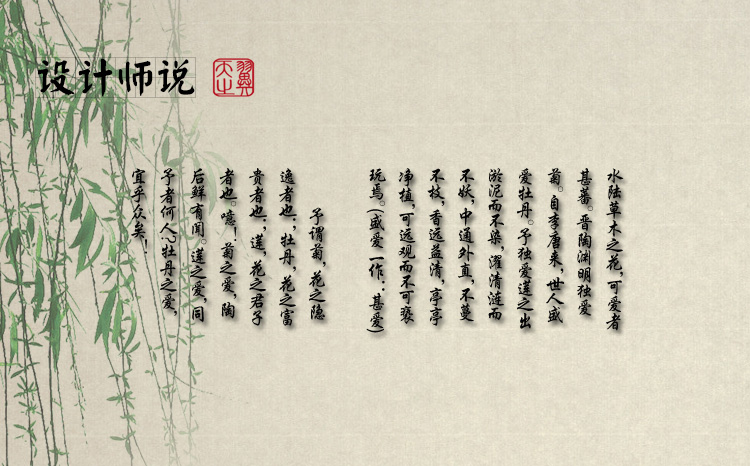 设计师说
水陆草木之花，可爱者
甚蕃。晋陶渊明独爱
菊。自李唐来，世人盛
爱牡丹。予独爱莲之出
淤泥而不染，濯清涟而
不妖，中通外直，不蔓
不枝，香远益清，亭亭
净植，可远观而不可亵
玩焉。(盛爱 一作：甚爱)
予谓菊，花之隐
逸者也；牡丹，花之富
贵者也；莲，花之君子
者也。噫！菊之爱，陶
后鲜有闻。莲之爱，同
予者何人？牡丹之爱，
宜乎众矣！